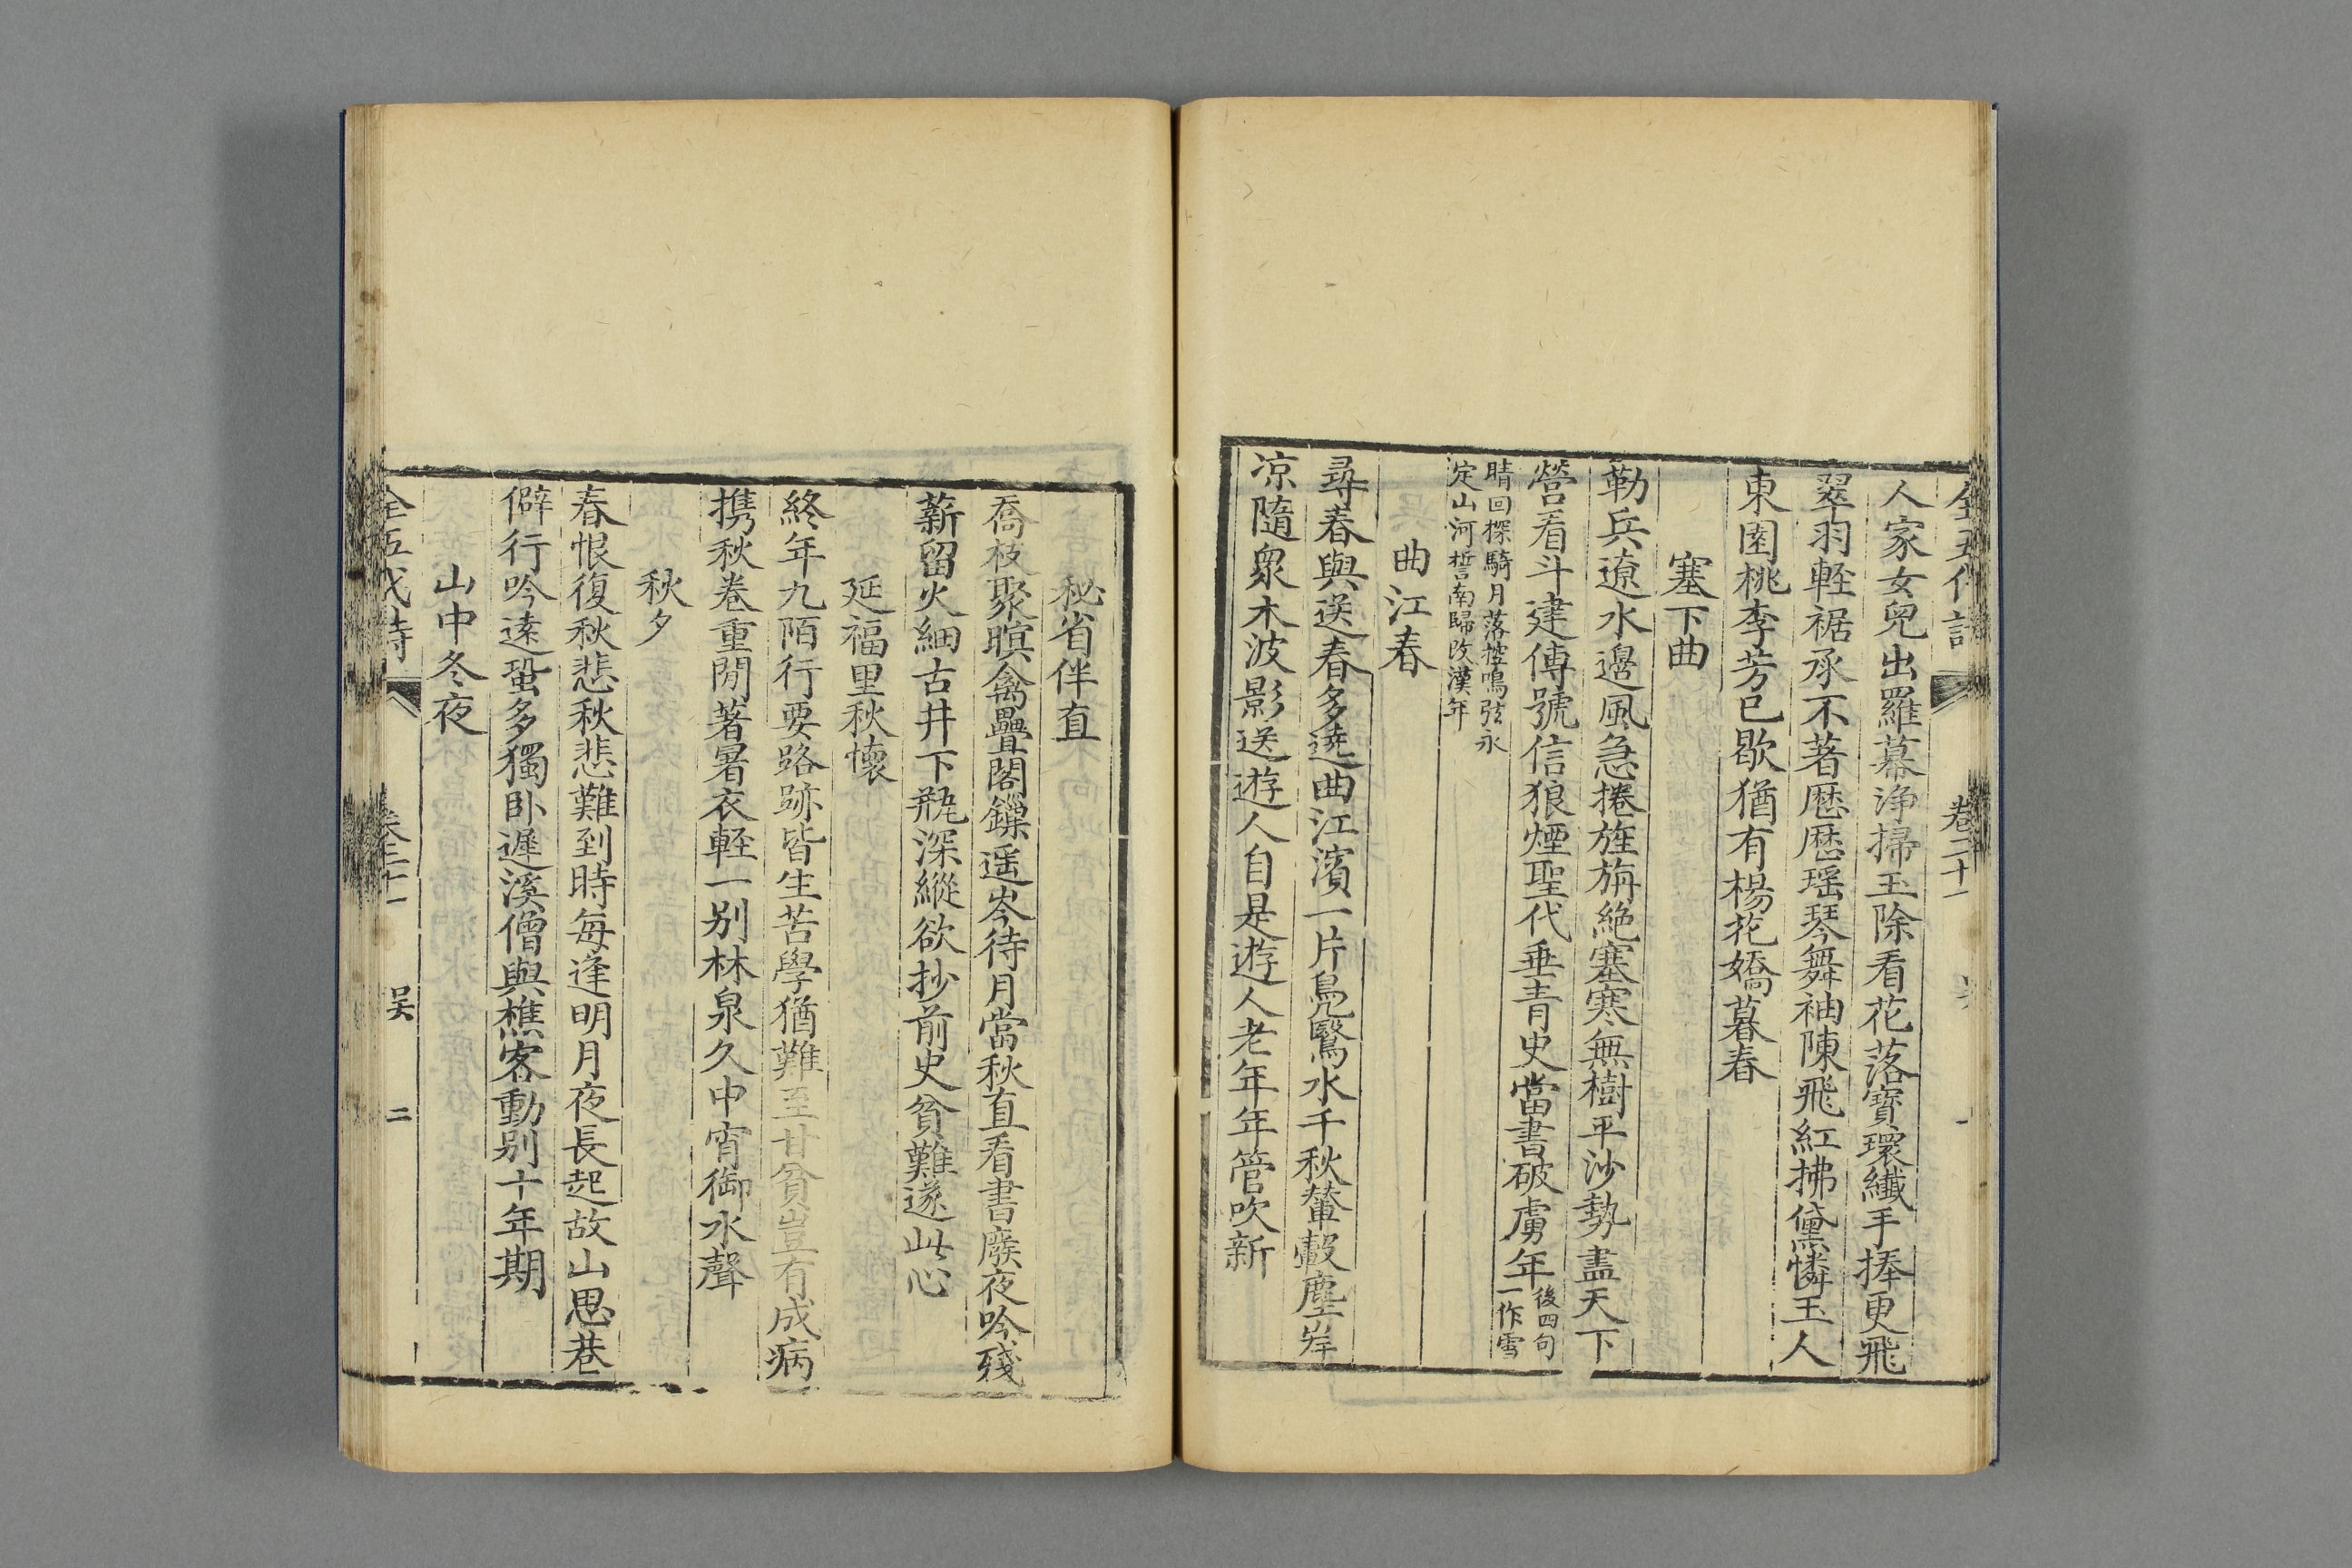 人家女兒出羅幕淨掃玉除看花落寶環纖手捧更飛
翠羽輕裾承不著歷歷瑤琴舞袖陳飛紅拂黛憐玉人
東園桃李芳已歇猶有楊花嬌暮春
塞下曲
勒兵遼水邊風急捲旌旃絕塞寒無樹平沙勢盡天下
營看斗建傳號信狼煙聖代垂青史當書破虜年後四句一作雪
晴回探騎月落控鳴弦永
定山河誓南歸改漢年
曲江春
尋春與送春多遶曲江濱一片鳧鷖水千秋輦轂塵岸
凉隨眾木波影送遊人自是遊人老年年管吹新
秘省伴直
喬枝聚暝禽疊閣鏁遥岑待月當秋直看書廢夜吟殘
薪留火細古井下瓶深縱欲抄前史貧難遂此心
延福里秋懷
終年九陌行要路跡皆生苦學猶難至甘貧豈有成病
携秋卷重閒著暑衣輕一別林泉久中宵御水聲
秋夕
春恨復秋悲秋悲難到時每逢明月夜長起故山思巷
僻行吟遠蛩多獨卧遲溪僧與樵客動別十年期
山中冬夜
全五代詩 卷二十一 吴 二